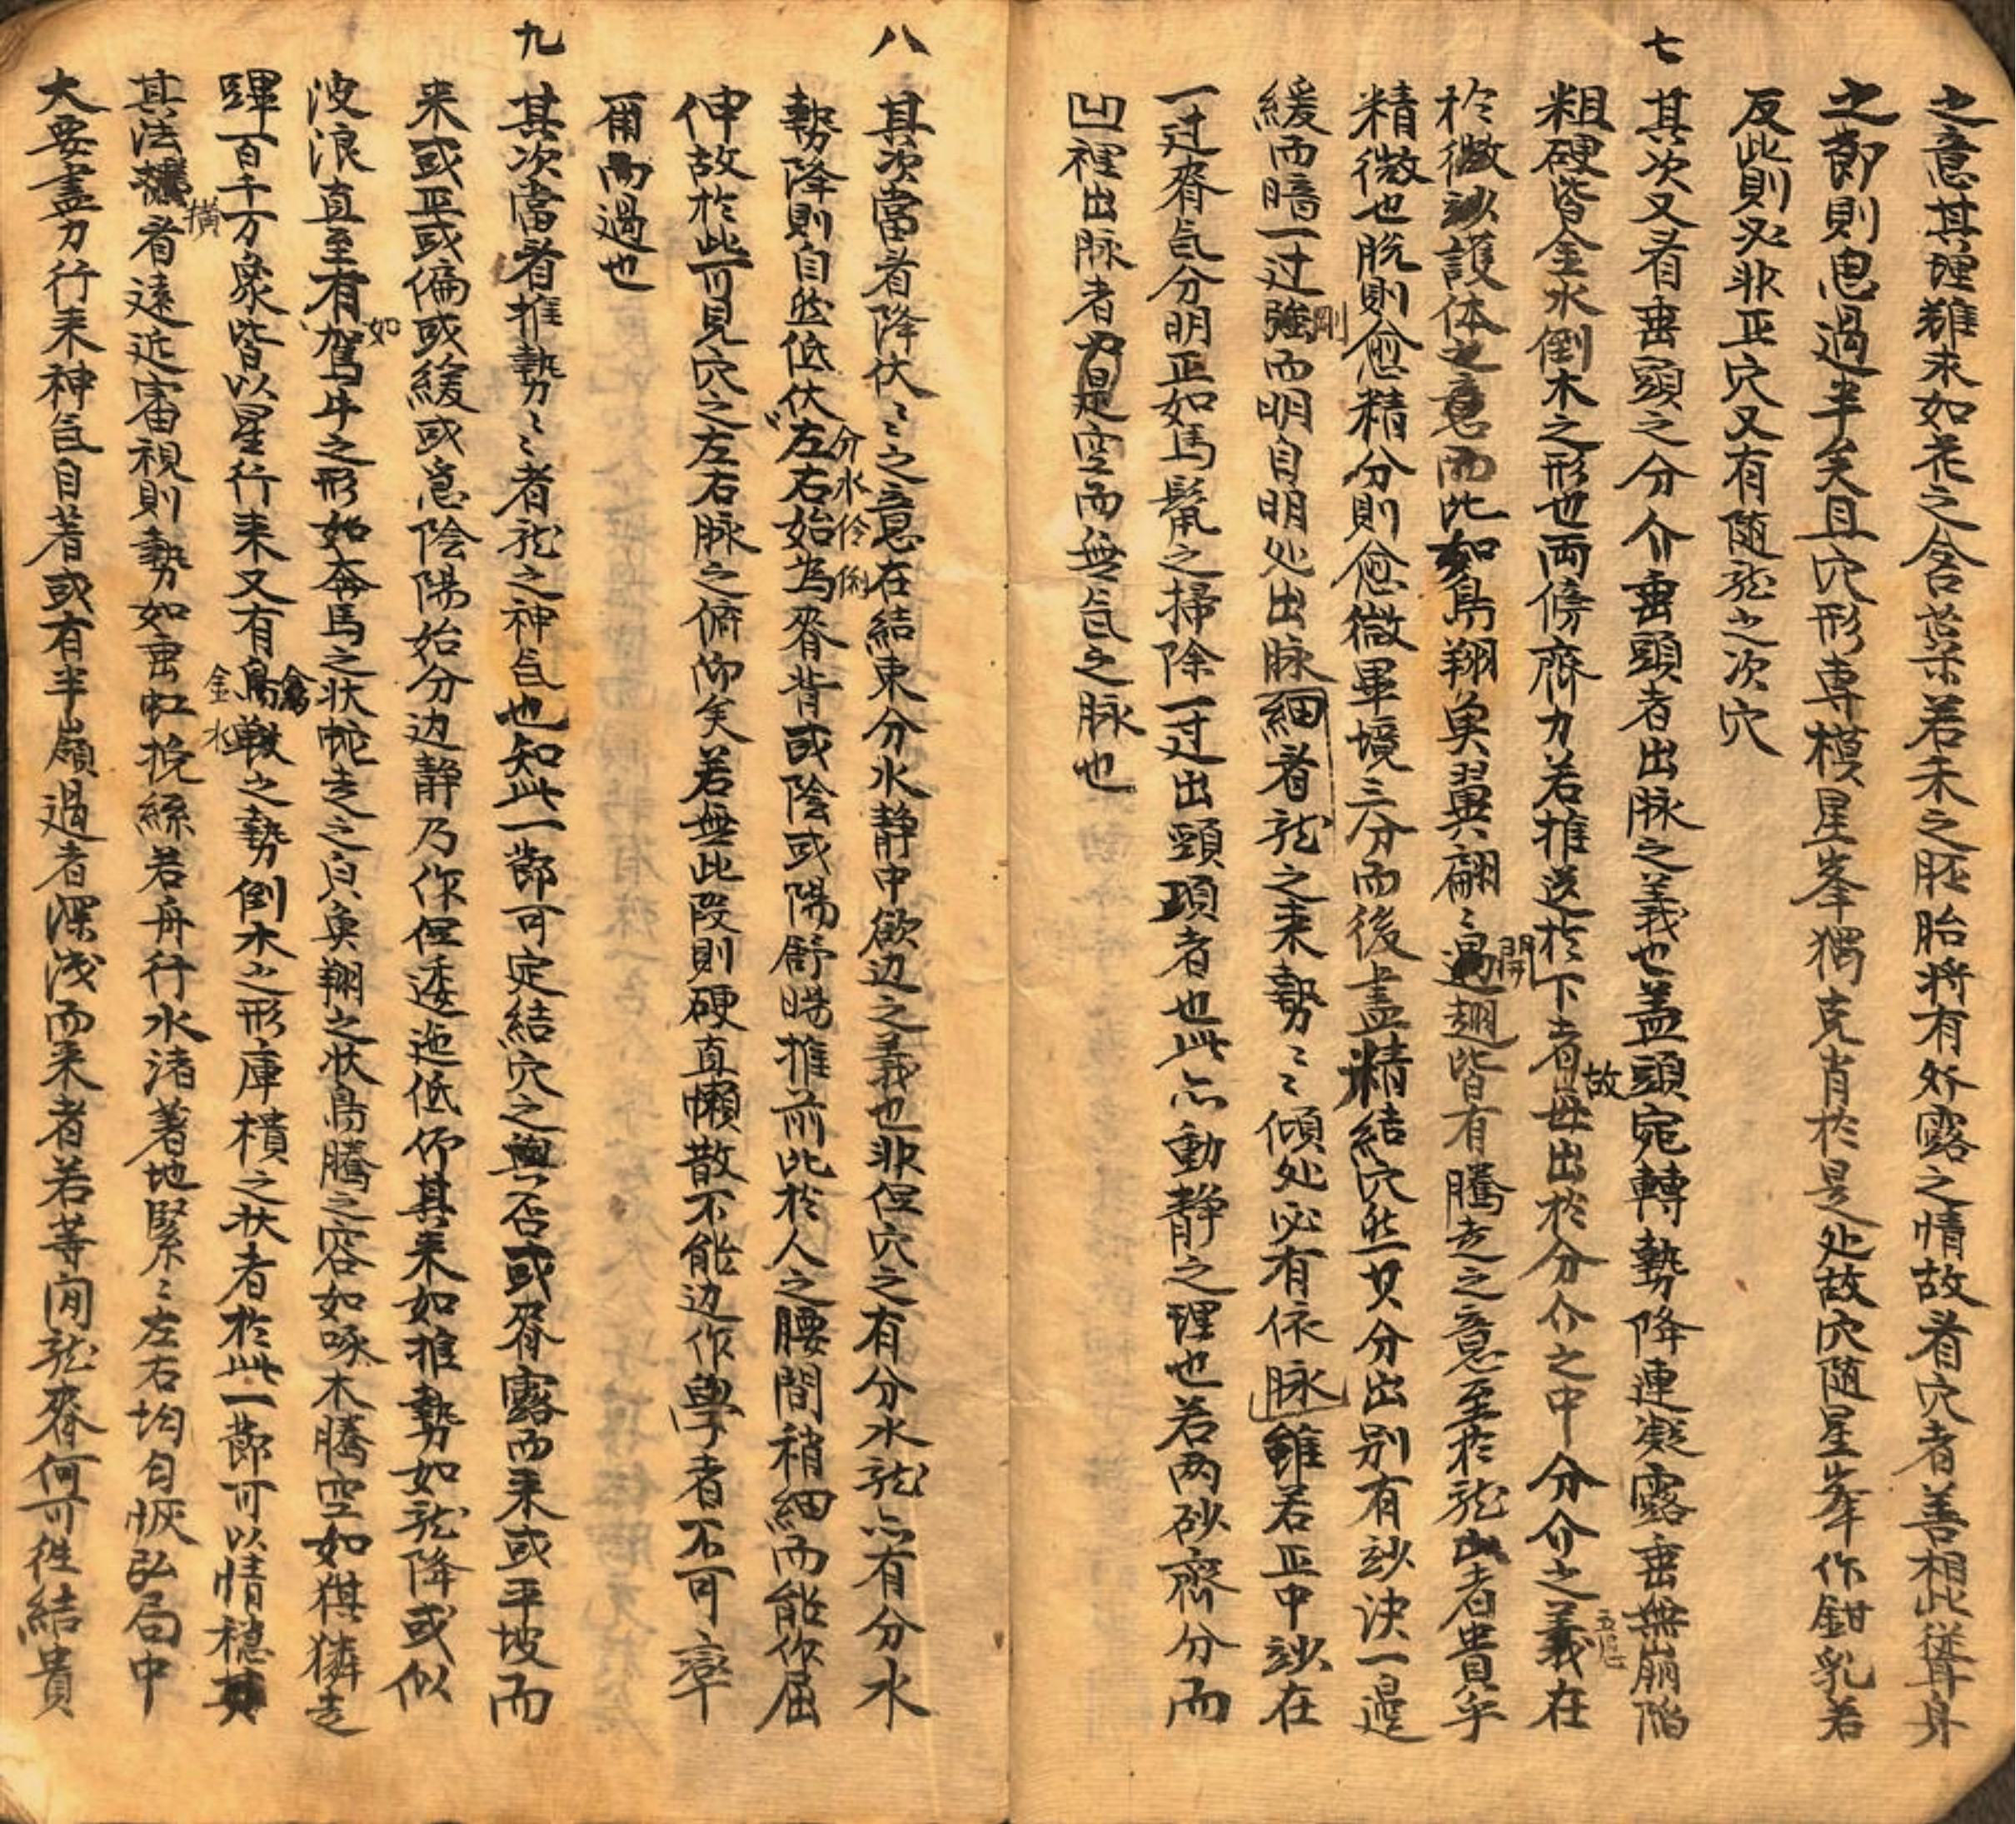 之意其理雖未如花之含蕊未若未之胚胎將有外露之情故看穴者善想此從身
之節則思過半矣且穴形專模星峯獨克肖於是处故穴随星峯作鉗乳若
反此則必非正穴又有随龍之次穴
七 其次又看垂頭之分介垂頭者出脉之義也盖頭宛轉勢降連凝露垂無崩陷
粗硬皆金水倒木之形也両傍齊力若推送於下者故出於分介之中分介之義在
於微砂護体之意而此如鳥翔魚翼翩〻開翅皆有騰走之意至於龍者貴乎
精微也脱則愈精分則愈微畢境三分而後盡精結穴然其分出別有砂決一邊
緩而暗一过強剛而明自明处出脉細看龍之来勢〻傾处必有依脉雖若正中砂在
一过脊气分明正如馬鬣之掃除一过出頸項者也此亦動静之理也若两砂齊分而
凹裡出脉者是空而無气之脉也
八 其次當看降伏〻之意在結束分水静中欲边之義也非但穴之有分水龍亦有分水
勢降則自然低伏左右分水伶俐始為脊背或陰或陽舒暢推前此於人之腰間稍細而能作屈
伸故於此可見穴之左右脉之俯仰矣若無此段則硬直懶散不能边作學者不可率
爾而過也
九 其次當看推勢〻者龍之神气也知此一節可定結穴之與否或脊露而来或平坡而
来或正或偏或緩或急陰陽始分边静乃作但逶迤低仰其来如推勢如龍降或似
波浪直至有如駕牛之形如奔馬之状蛇走之自魚翔之状鳥騰之容如啄木騰空如猉獜走
暉百千万象皆以星行来又有禽戰之勢金水倒木之形庫樻之状者於此一節可以情穏
其法橫看遠近審視則勢如垂虹挽絲若舟行水渚著地緊〻左右均匀恢弘局中
大要盡力行来神气自著或有半嶺過者深浅而来者若等閑龍脊何可徃結貴